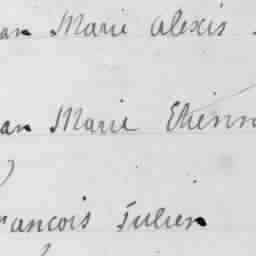 an Marie alexis
an Marie Etienn
rancois Julien